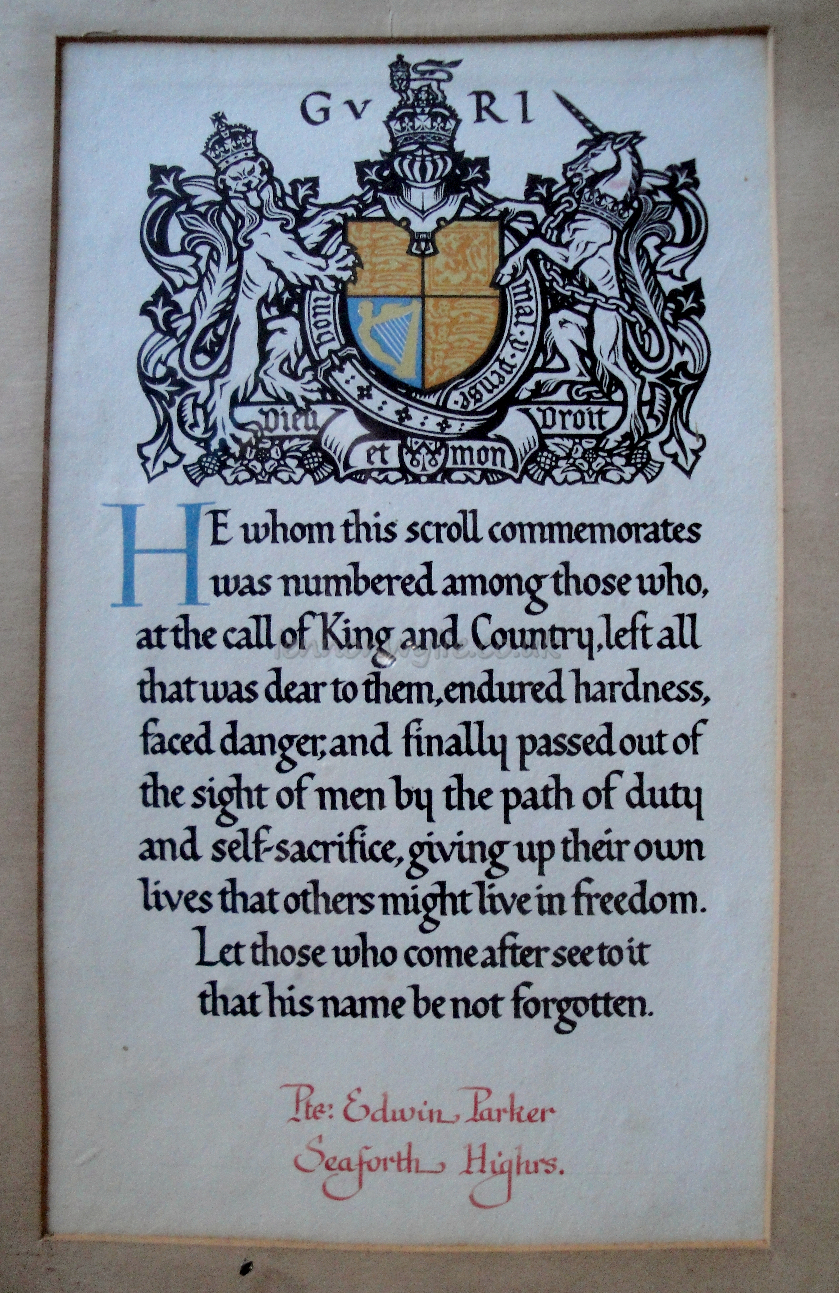 GV RI
Dieu et mon Droit
HE whom this scroll commemorates
was numbered among those who,
at the call of King and Country, left all
that was dear to them, endured hardness,
faced danger, and finally passed out of
the sight of men by the path of duty
and self-sacrifice, giving up their own
lives that others might live in freedom.
Let those who come after see to it
that his name be not forgotten.
Pte: Edwin Parker
Seaforth Highrs.